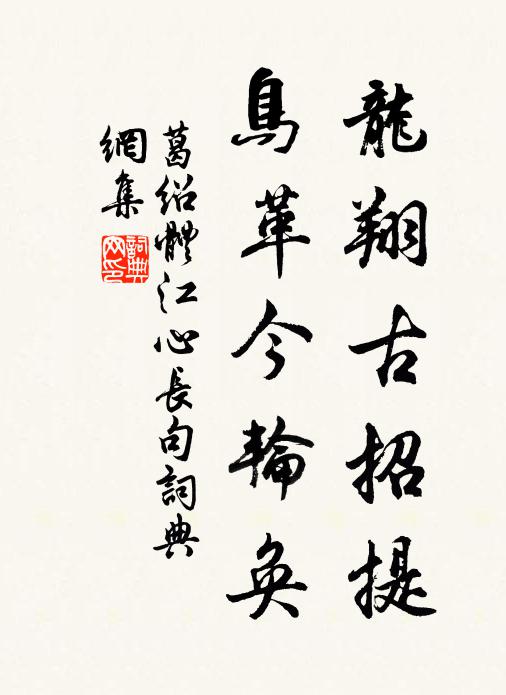 龍翔古招提
鳥革今輪奐
葛紹體江心長句詞典
網集
詞典网印